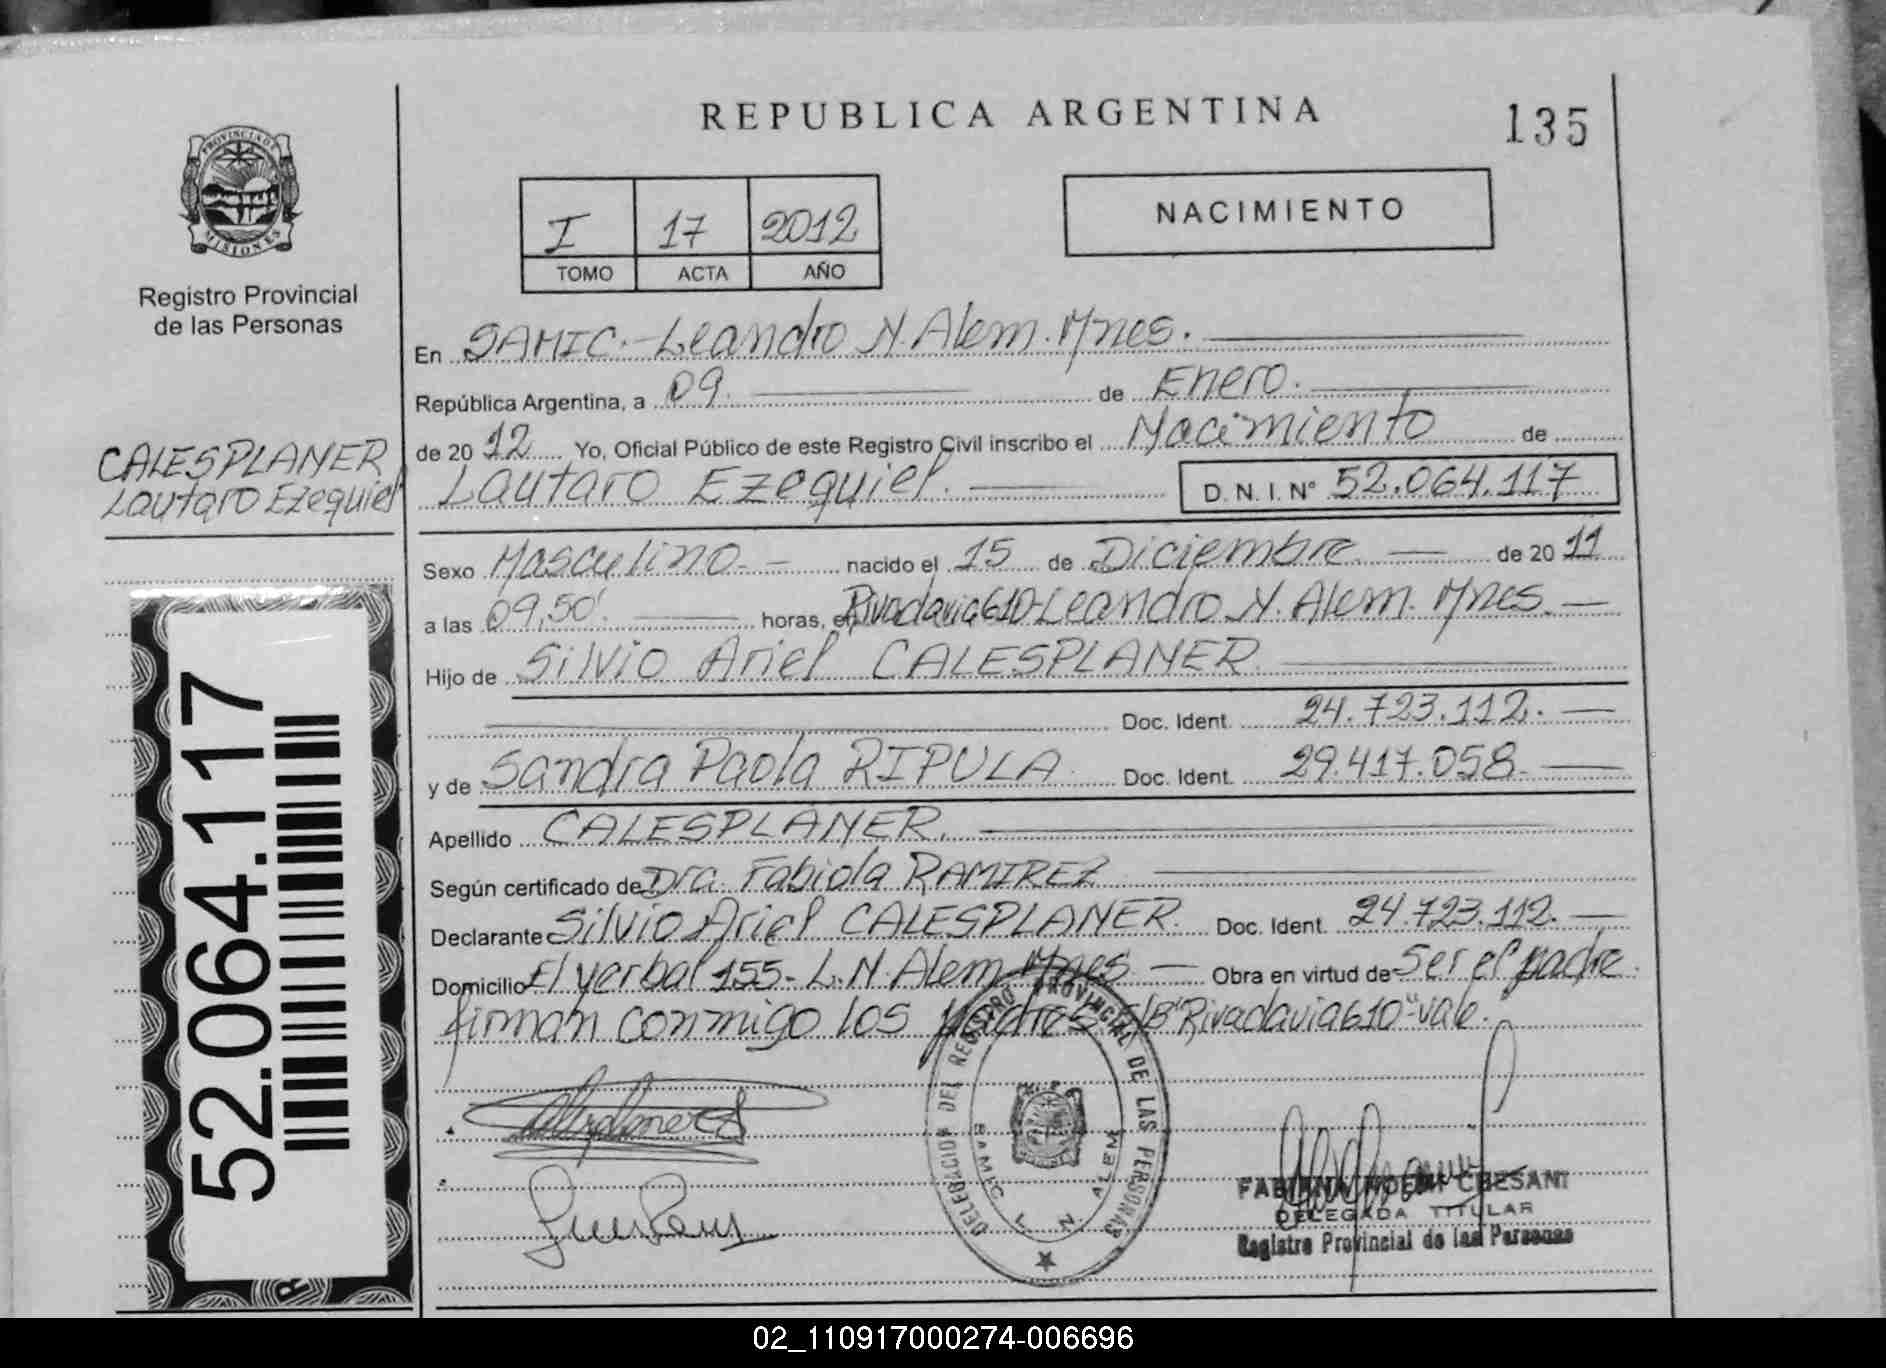 REPUBLICA ARGENTINA
135
PROVINCIA DE
MISIONES
Registro Provincial
de las Personas
I 17 2012
TOMO ACTA AÑO
NACIMIENTO
En SAMIC.-Leandro N. Alem. Mnes.
República Argentina, a 09. de Enero.
de 20 12 Yo, Oficial Público de este Registro Civil inscribo el Nacimiento de
Lautaro Ezequiel. D.N.I. N° 52.064.117
CALESPLANER
Lautaro Ezequiel
Sexo Masculino.- nacido el 15 de Diciembre de 20 11
a las 09,50'. horas, en Rivadavia 610-Leandro N. Alem. Mnes.
Hijo de Silvio Ariel CALESPLANER
Doc. Ident. 24.723.112.
y de Sandra Paola RIPULA Doc. Ident. 29.417.058.
Apellido CALESPLANER.
Según certificado de Dra. Fabiola RAMIREZ
Declarante Silvio Ariel CALESPLANER. Doc. Ident. 24.723.112.
Domicilio El Yerbal 155- L.N. Alem Mnes Obra en virtud de Ser el padre
firman conmigo los padres S/B "Rivadavia 610" vale.
52.064.117
DELEGACION DEL REGISTRO PROVINCIAL DE LAS PERSONAS
SAMIC L. N. ALEM
FABIANA NOEMI CHESANI
DELEGADA TITULAR
Registro Provincial de las Personas
R
02_110917000274-006696